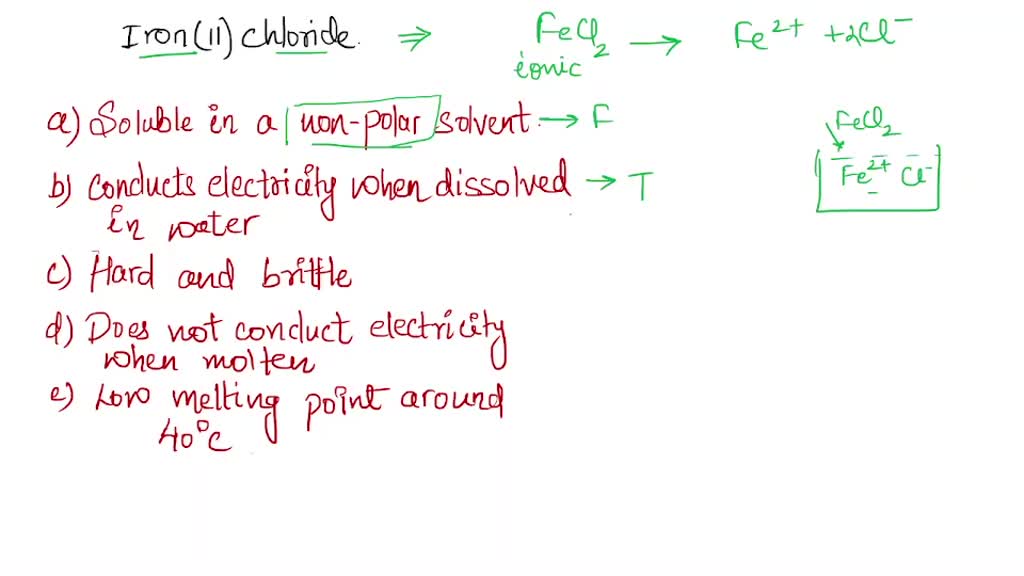 Iron(11) chloride. ⇒ FeCl2 → Fe2+ + 2Cl−
ionic
a) Soluble in a non-polar solvent. → F
FeCl2
b) Conducts electricity when dissolved → T
in water
Fe2+ Cl−
c) Hard and brittle
d) Does not conduct electricity
when molten
e) Low melting point around
40°C